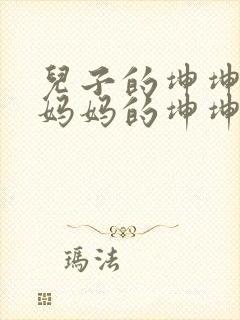 兒子的坤坤
妈妈的坤坤
瑪法